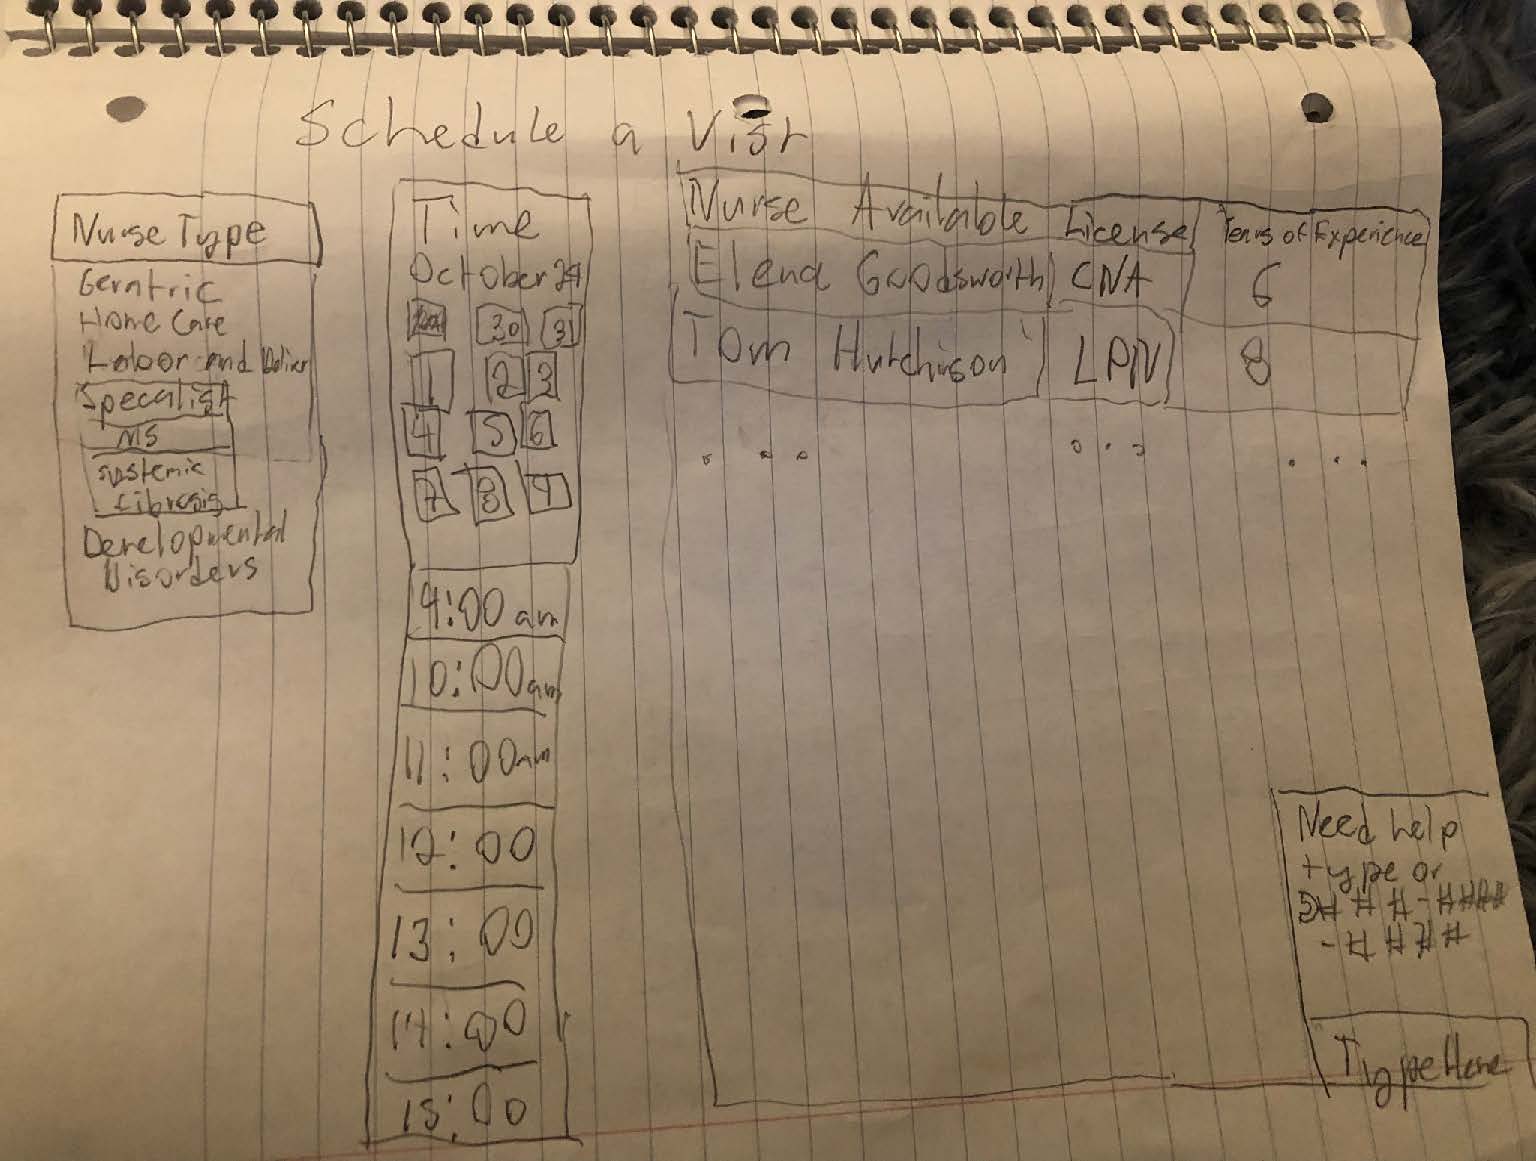 Schedule a Visr
Nurse Type
Gerntric
Home Care
Labor and Deliver
Specalist
MS
systemic
fibrosis
Developmental
Disorders
Time
October 29
30 31
1 2 3
4 5 6
7 8 9
9:00 am
10:00 am
11:00 am
12:00
13:00
14:00
15:00
Nurse Available License Years of Experience
Elena Goodsworth CNA 6
Tom Hutchinson LPN 8
... ... ...
Need help
type or
###-####
-####
Type Here